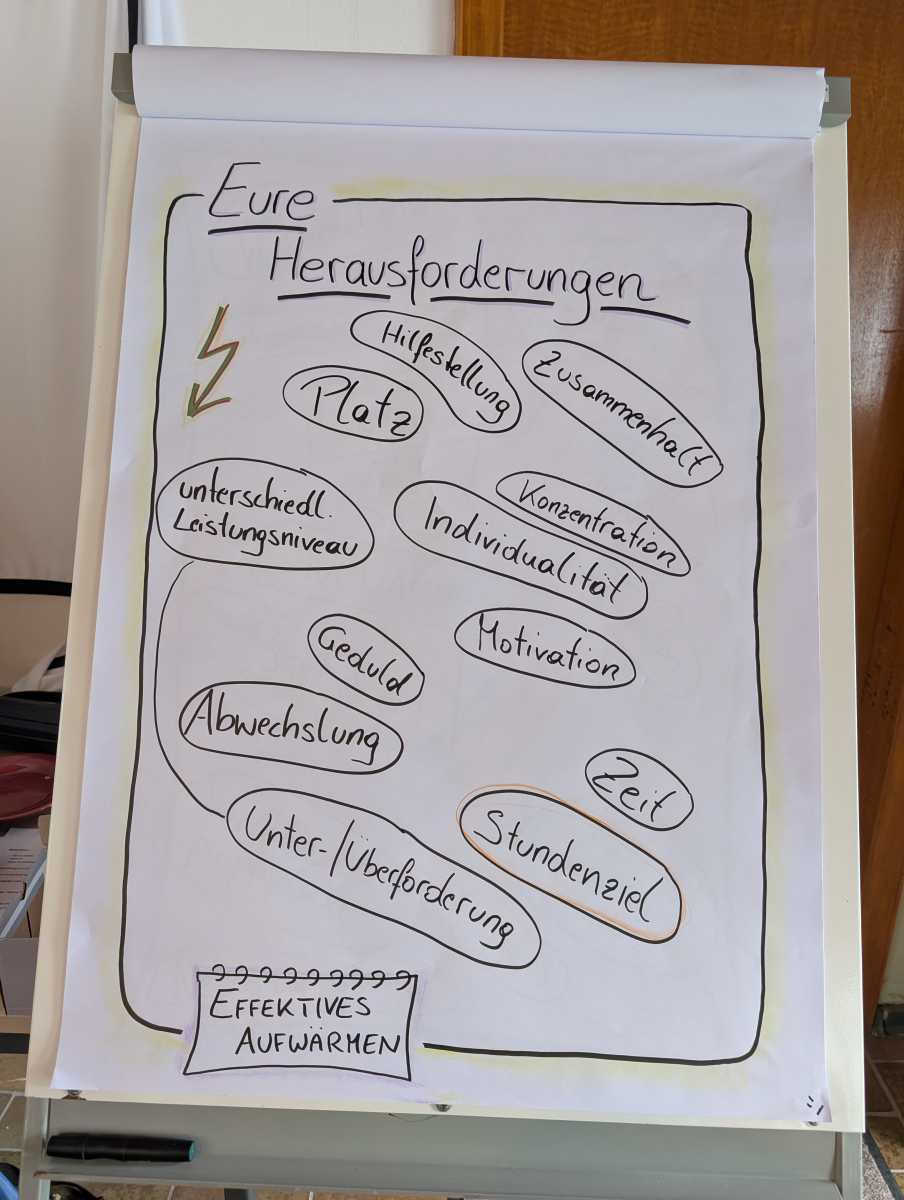 Eure
Herausforderungen
Hilfestellung
Zusammenhalt
Platz
unterschiedl.
Leistungsniveau
Konzentration
Individualität
Geduld
Motivation
Abwechslung
Zeit
Stundenziel
Unter-/Überforderung
EFFEKTIVES
AUFWÄRMEN